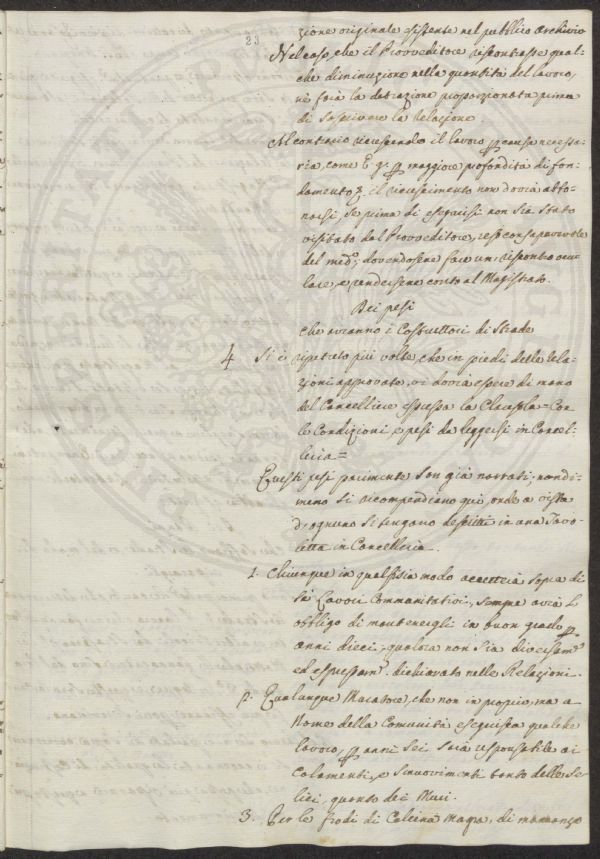 23
zione originale esistente nel pubblico Archivio
Nel caso, che il Provveditore riscontrasse qual-
che diminuzione nella quantità del lavoro,
ne farà la detrazione proporzionata prima
di scrivere la Relazione.
Al contrario crescendo il lavoro per causa necessa-
ria, come E. g. per maggiore profondità di fon-
damento, il crescimento non dovrà abbo-
narsi, se prima di eseguirsi non sia stato
visitato dal Provveditore, reso consapevole
del med.o; dovendosene fare un riscontro ocu-
lare, e rendersene conto al Magistrato.
Dei pesi
che avranno i Costruttori di Strade
4 Si è ripetuto più volte, che in piedi delle Rela-
zioni approvate, vi dovrà essere di mano
del Cancelliere espressa la Clausola = Con
le Condizioni, e pesi da leggersi in Cancel-
leria =
Questi pesi parimente son già notati; nondi-
meno si ricompendiano quì, onde a vista
d'ognuno si tengono descritti in una Tavo-
letta in Cancelleria.
1. Chiunque in qualsisia modo accetterà sopra di
sè Lavori Communitativi, sempre avrà l'
obbligo di mantenergli in buon grado per
anni dieci, qualora non sia diversam.e
ed espressam.e dichiarato nelle Relazioni.
2. Qualunque Muratore, che non in proprio, ma a
Nome della Comunità eseguisca qualche
lavoro, per anni sei sarà responsabile ai
Calamenti, e smuovimenti tanto delle Se-
lici, quanto dei Muri.
3. Per le frodi di Calcina Magra, di mancanza